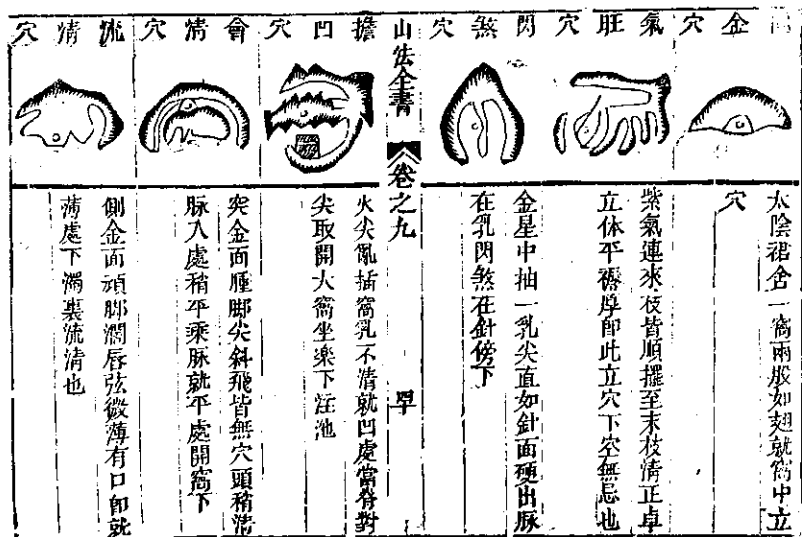 金穴
太陰裙舍一窩兩股如翅就窩中立
穴
氣旺穴
紫氣連來枝皆順擺至末枝情正卓
立体平褥厚即此立穴下空無忌也
閃煞穴
金星中抽一乳尖直如針面硬出脉
在乳閃煞在針傍下
山法全書
卷之九
擔凹穴
火尖亂插窩乳不清就凹處當脊對
尖取開大窩坐樂下注池
會清穴
突金面腫脚尖斜飛皆無穴頭稍清
脉入處稍平乘脉就平處開窩下
流清穴
側金面頑脚濶唇弦微薄有口即就
薄處下濁裏流清也